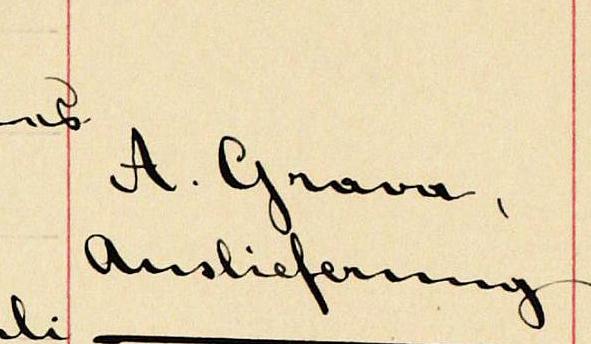 A. Grava,
Auslieferung